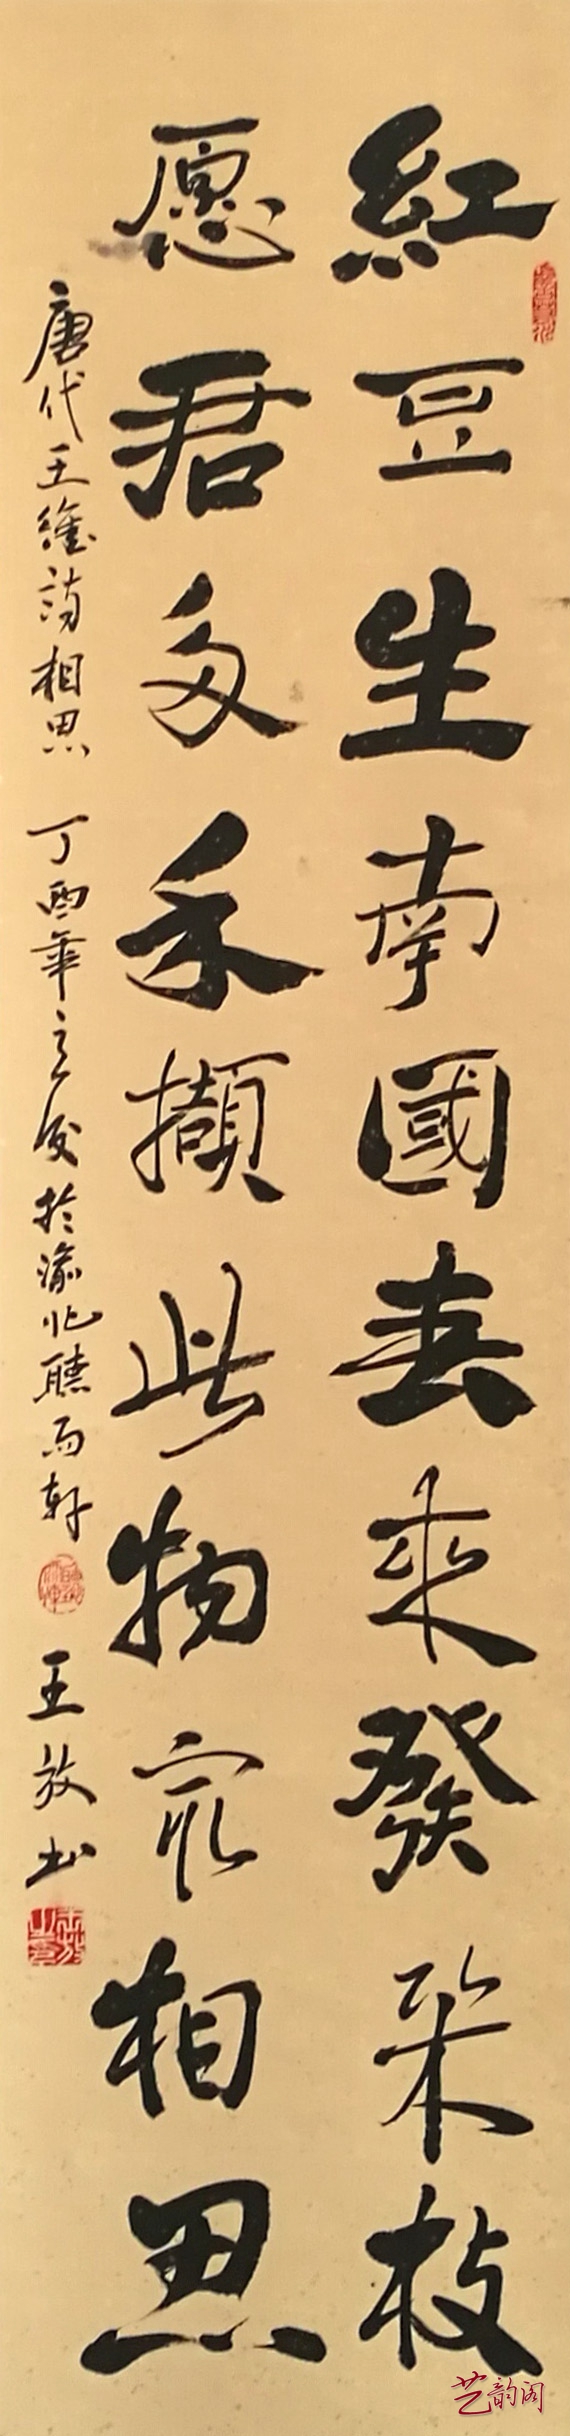 紅豆生南國春來發幾枝
愿君多采擷此物最相思
唐代王維詩相思 丁酉年立夏於渝北聽雨軒
王放书
艺韵阁